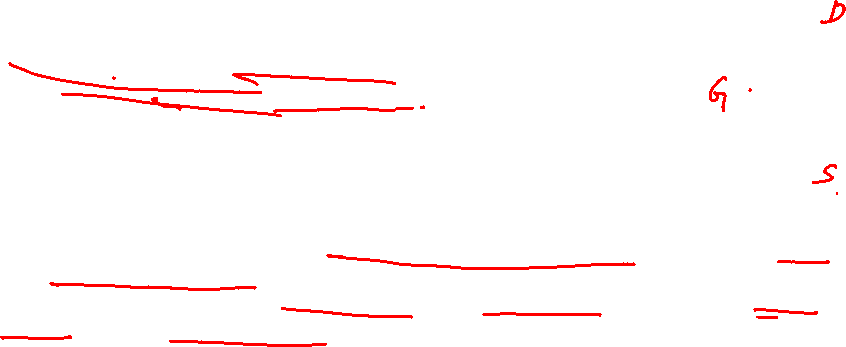 D
G
S